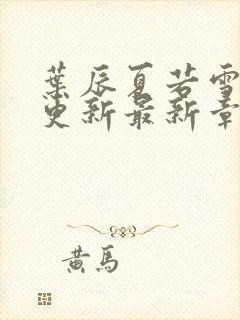 葉辰夏若雪
更新最新章
黃馬